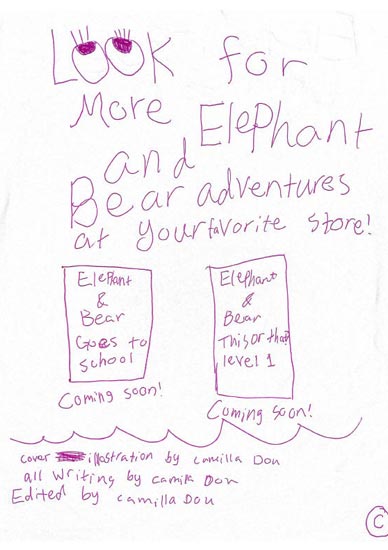 LOOK for
More Elephant
and
Bear adventures
at your favorite store!
Elephant
&
Bear
Goes to
school
Coming soon!
Elephant
&
Bear
This or that
level 1
Coming soon!
cover illastration by camilla Don
all writing by camilla Don
Edited by camilla Don
©